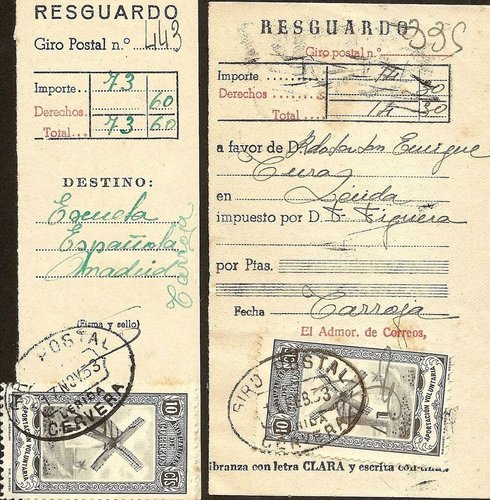 RESGUARDO
Giro Postal n.º 443
Importe 73
Derechos 60
Total 73 60
DESTINO:
Escuela
Española
Madrid
Tarroja
(Firma y sello)
POSTAL
NOV 53
LERIDA
CERVERA
APORTACION VOLUNTARIA
10 CTS
RESGUARDO
Giro postal n.º 335
Importe 14
Derechos 30
Total 14 30
a favor de D. Enrique
Cura
en Lérida
impuesto por D. Figuera
por Ptas.
Fecha Tarroja
El Admor. de Correos,
GIRO POSTAL
CERVERA
10 CTS
APORTACION VOLUNTARIA
ibranza con letra CLARA y escrita con tinta